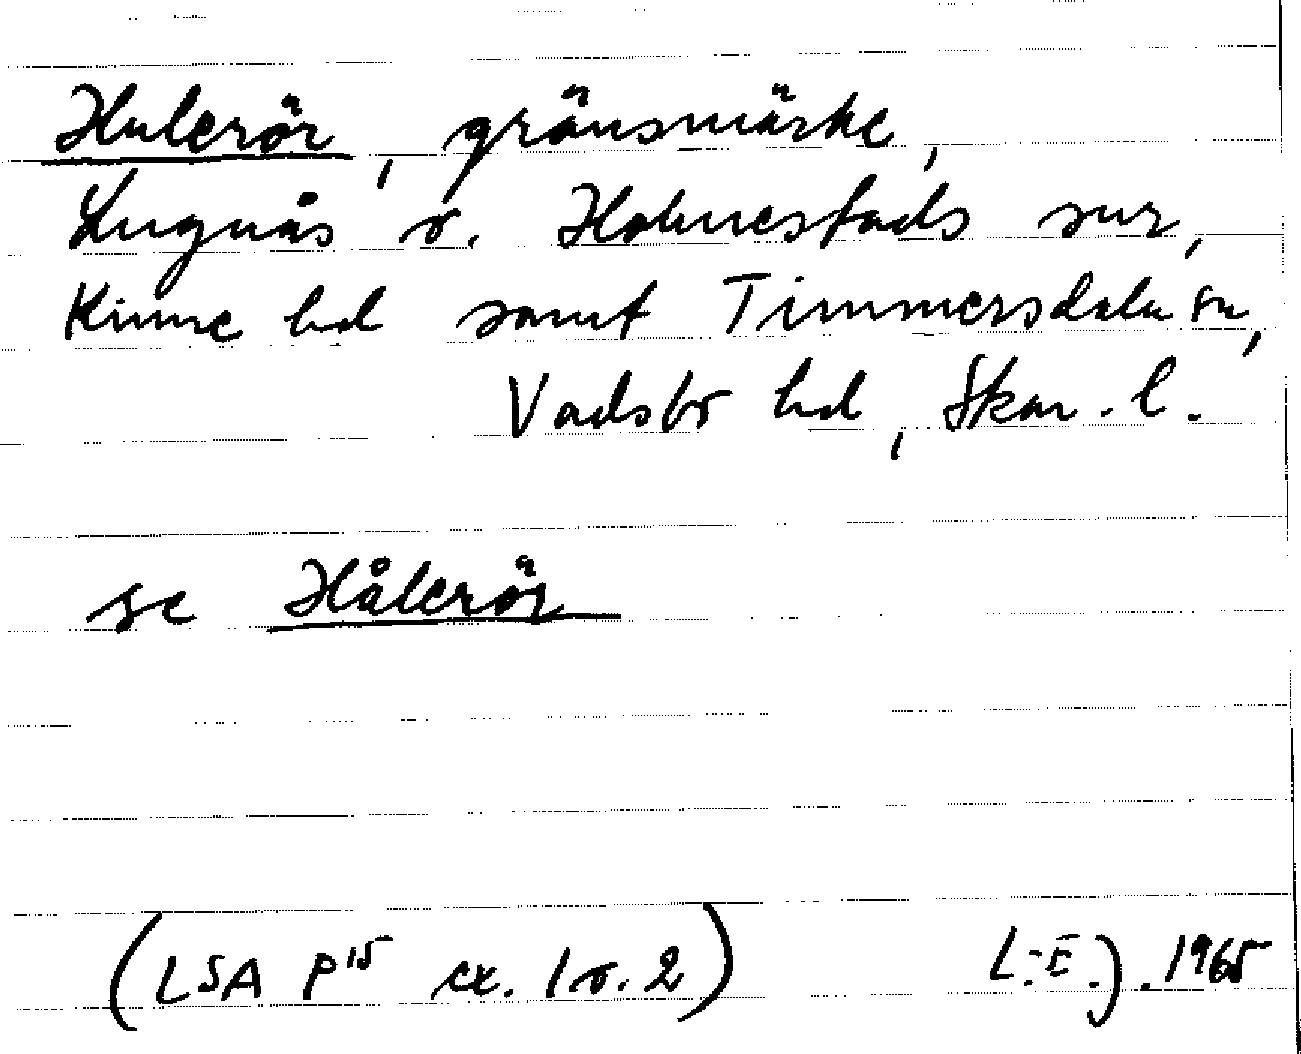 Hulerör, gränsmärke,
Lugnås o. Holmestads snr,
Kinne hd samt Timmersdala sn,
Vadsbo hd, Skar. l.
se Hålerör
(LSA P15 ex. 1 o. 2) L.-E. J. 1965